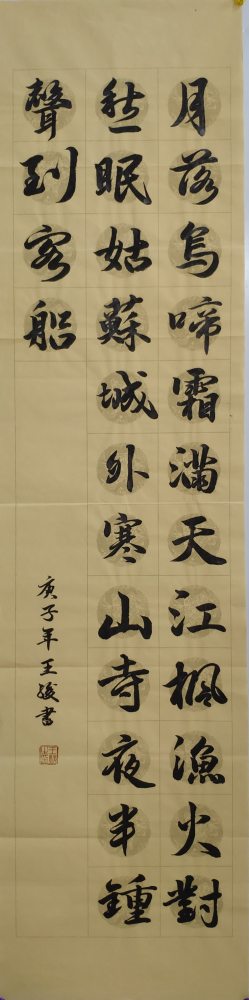 月落烏啼霜滿天江楓漁火對
愁眠姑蘇城外寒山寺夜半鍾
聲到客船
庚子年王書